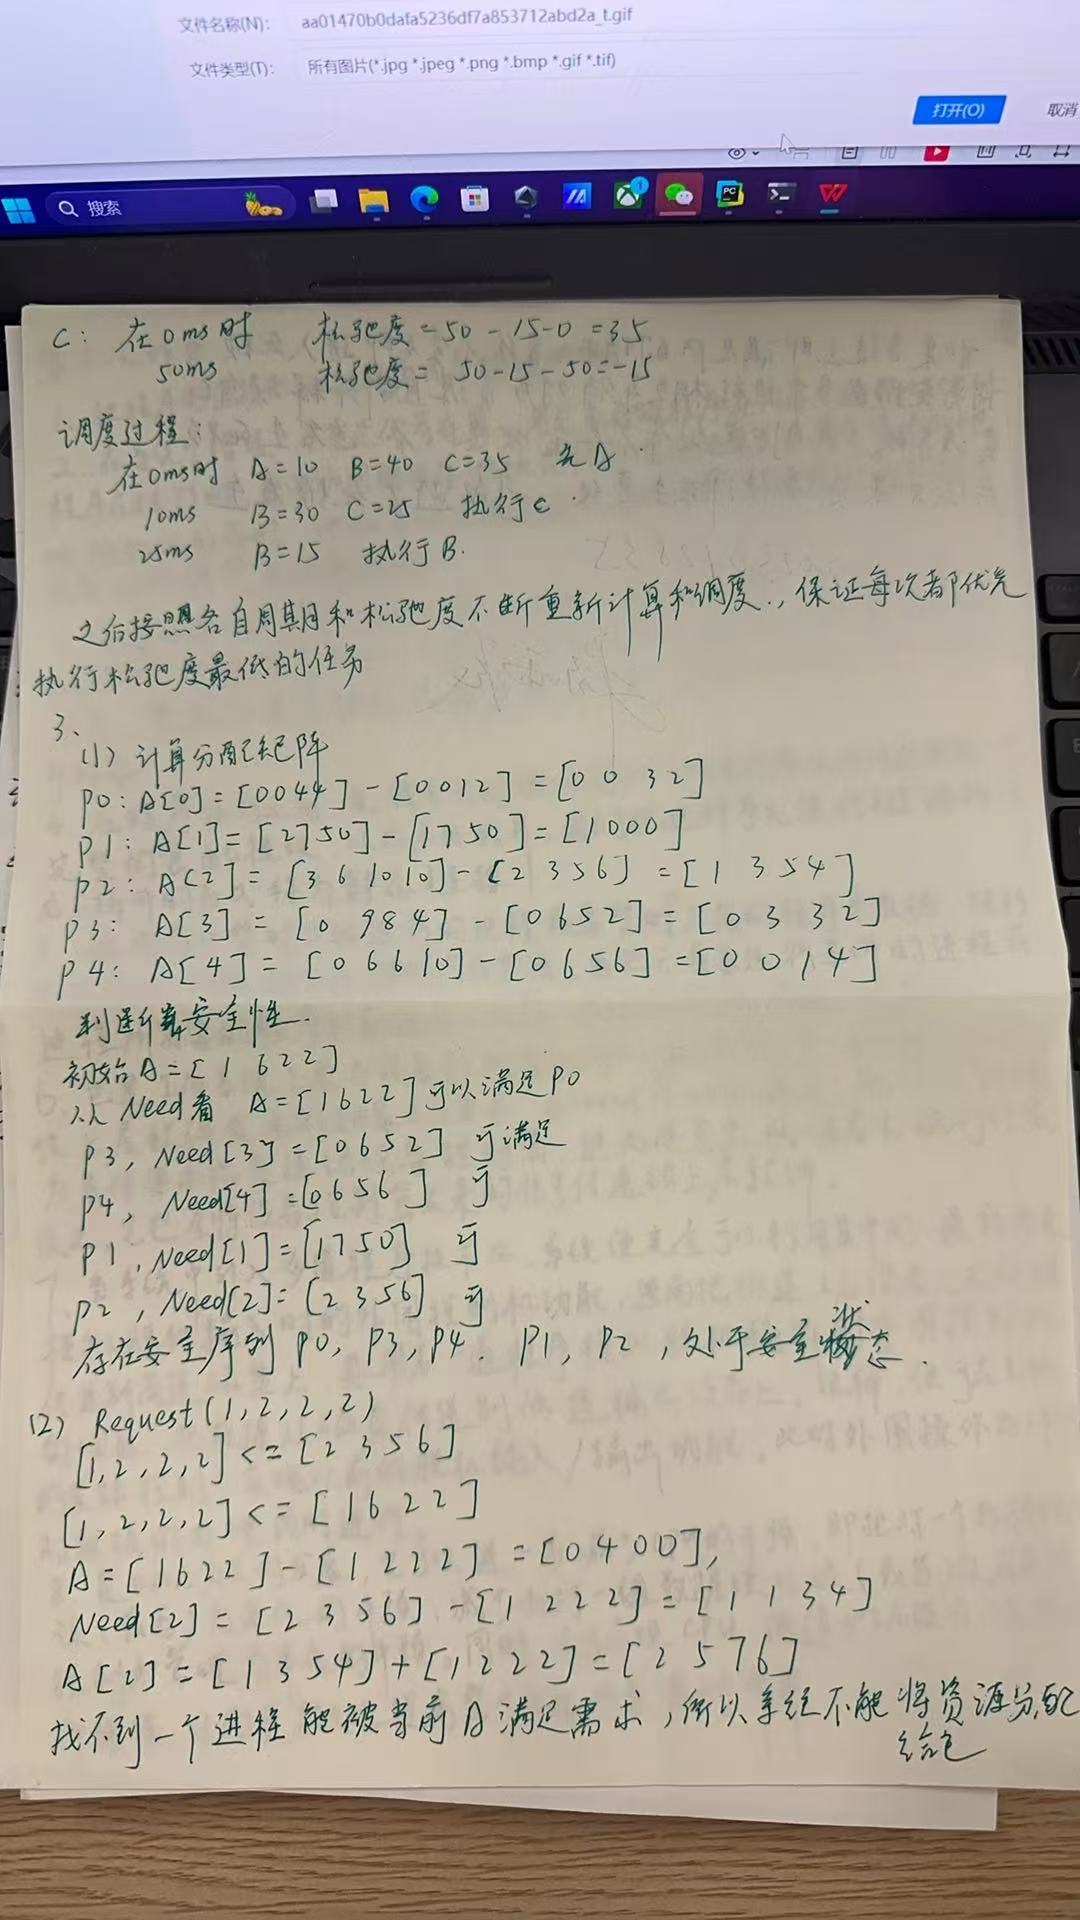 文件名称(N): aa01470b0dafa5236df7a853712abd2a_t.gif
文件类型(T): 所有图片(*.jpg *.jpeg *.png *.bmp *.gif *.tif)
打开(O) 取消
搜索
C: 在0ms时 松弛度=50-15-0=35
50ms 松弛度= 50-15-50=-15
调度过程:
在0ms时 A=10 B=40 C=35 先A
10ms B=30 C=25 执行C
25ms B=15 执行B.
之后按照各自周期和松弛度不断重新计算和调度,保证每次都优先
执行松弛度最低的任务
3、
(1) 计算分配矩阵
P0: A[0]=[0044]-[0012]=[0032]
P1: A[1]=[2750]-[1750]=[1000]
P2: A[2]=[3 6 10 10]-[2356]=[1354]
P3: A[3]=[0 984]-[0652]=[0332]
P4: A[4]=[06610]-[0656]=[0014]
判断安全性.
初始A=[1622]
从Need看 A=[1622]可以满足P0
P3, Need[3]=[0652] 可满足
P4, Need[4]=[0656] 可
P1, Need[1]=[1750] 可
P2, Need[2]=[2356] 可
存在安全序列 P0, P3, P4. P1, P2, 处于安全状态.
(2) Request(1,2,2,2)
[1,2,2,2]<=[2356]
[1,2,2,2]<=[1622]
A=[1622]-[1222]=[0400],
Need[2]=[2356]-[1222]=[1134]
A[2]=[1354]+[1222]=[2576]
找不到一个进程能被当前A满足需求,所以系统不能将资源分配
给它